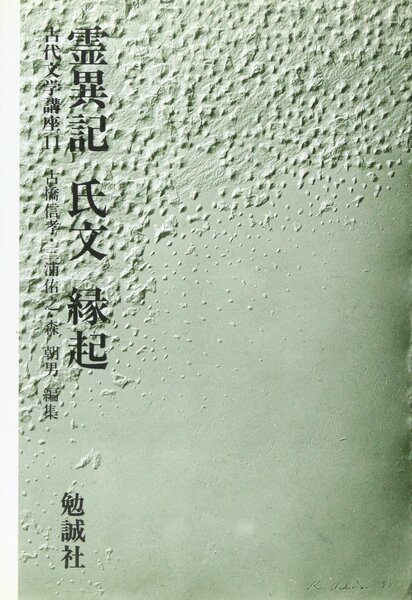 霊異記 氏文 縁起
古代文学講座11
古橋信孝・三浦佑之・森 朝男 編集
勉誠社